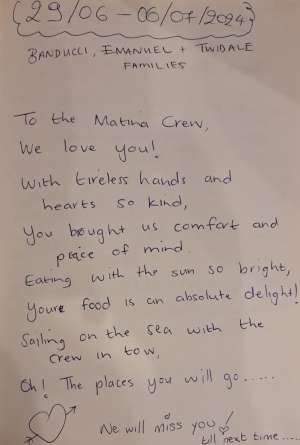 (29/06 - 06/07/2024)
BANDUCCI, EMANUEL + TWIDALE
FAMILIES
To the Matina Crew,
We love you!
With tireless hands and
hearts so kind,
You bought us comfort and
peice of mind.
Eating with the sun so bright,
Youre food is an absolute delight!
Sailing on the sea with the
crew in tow,
Oh! The places you will go.....
We will miss you!
till next time....